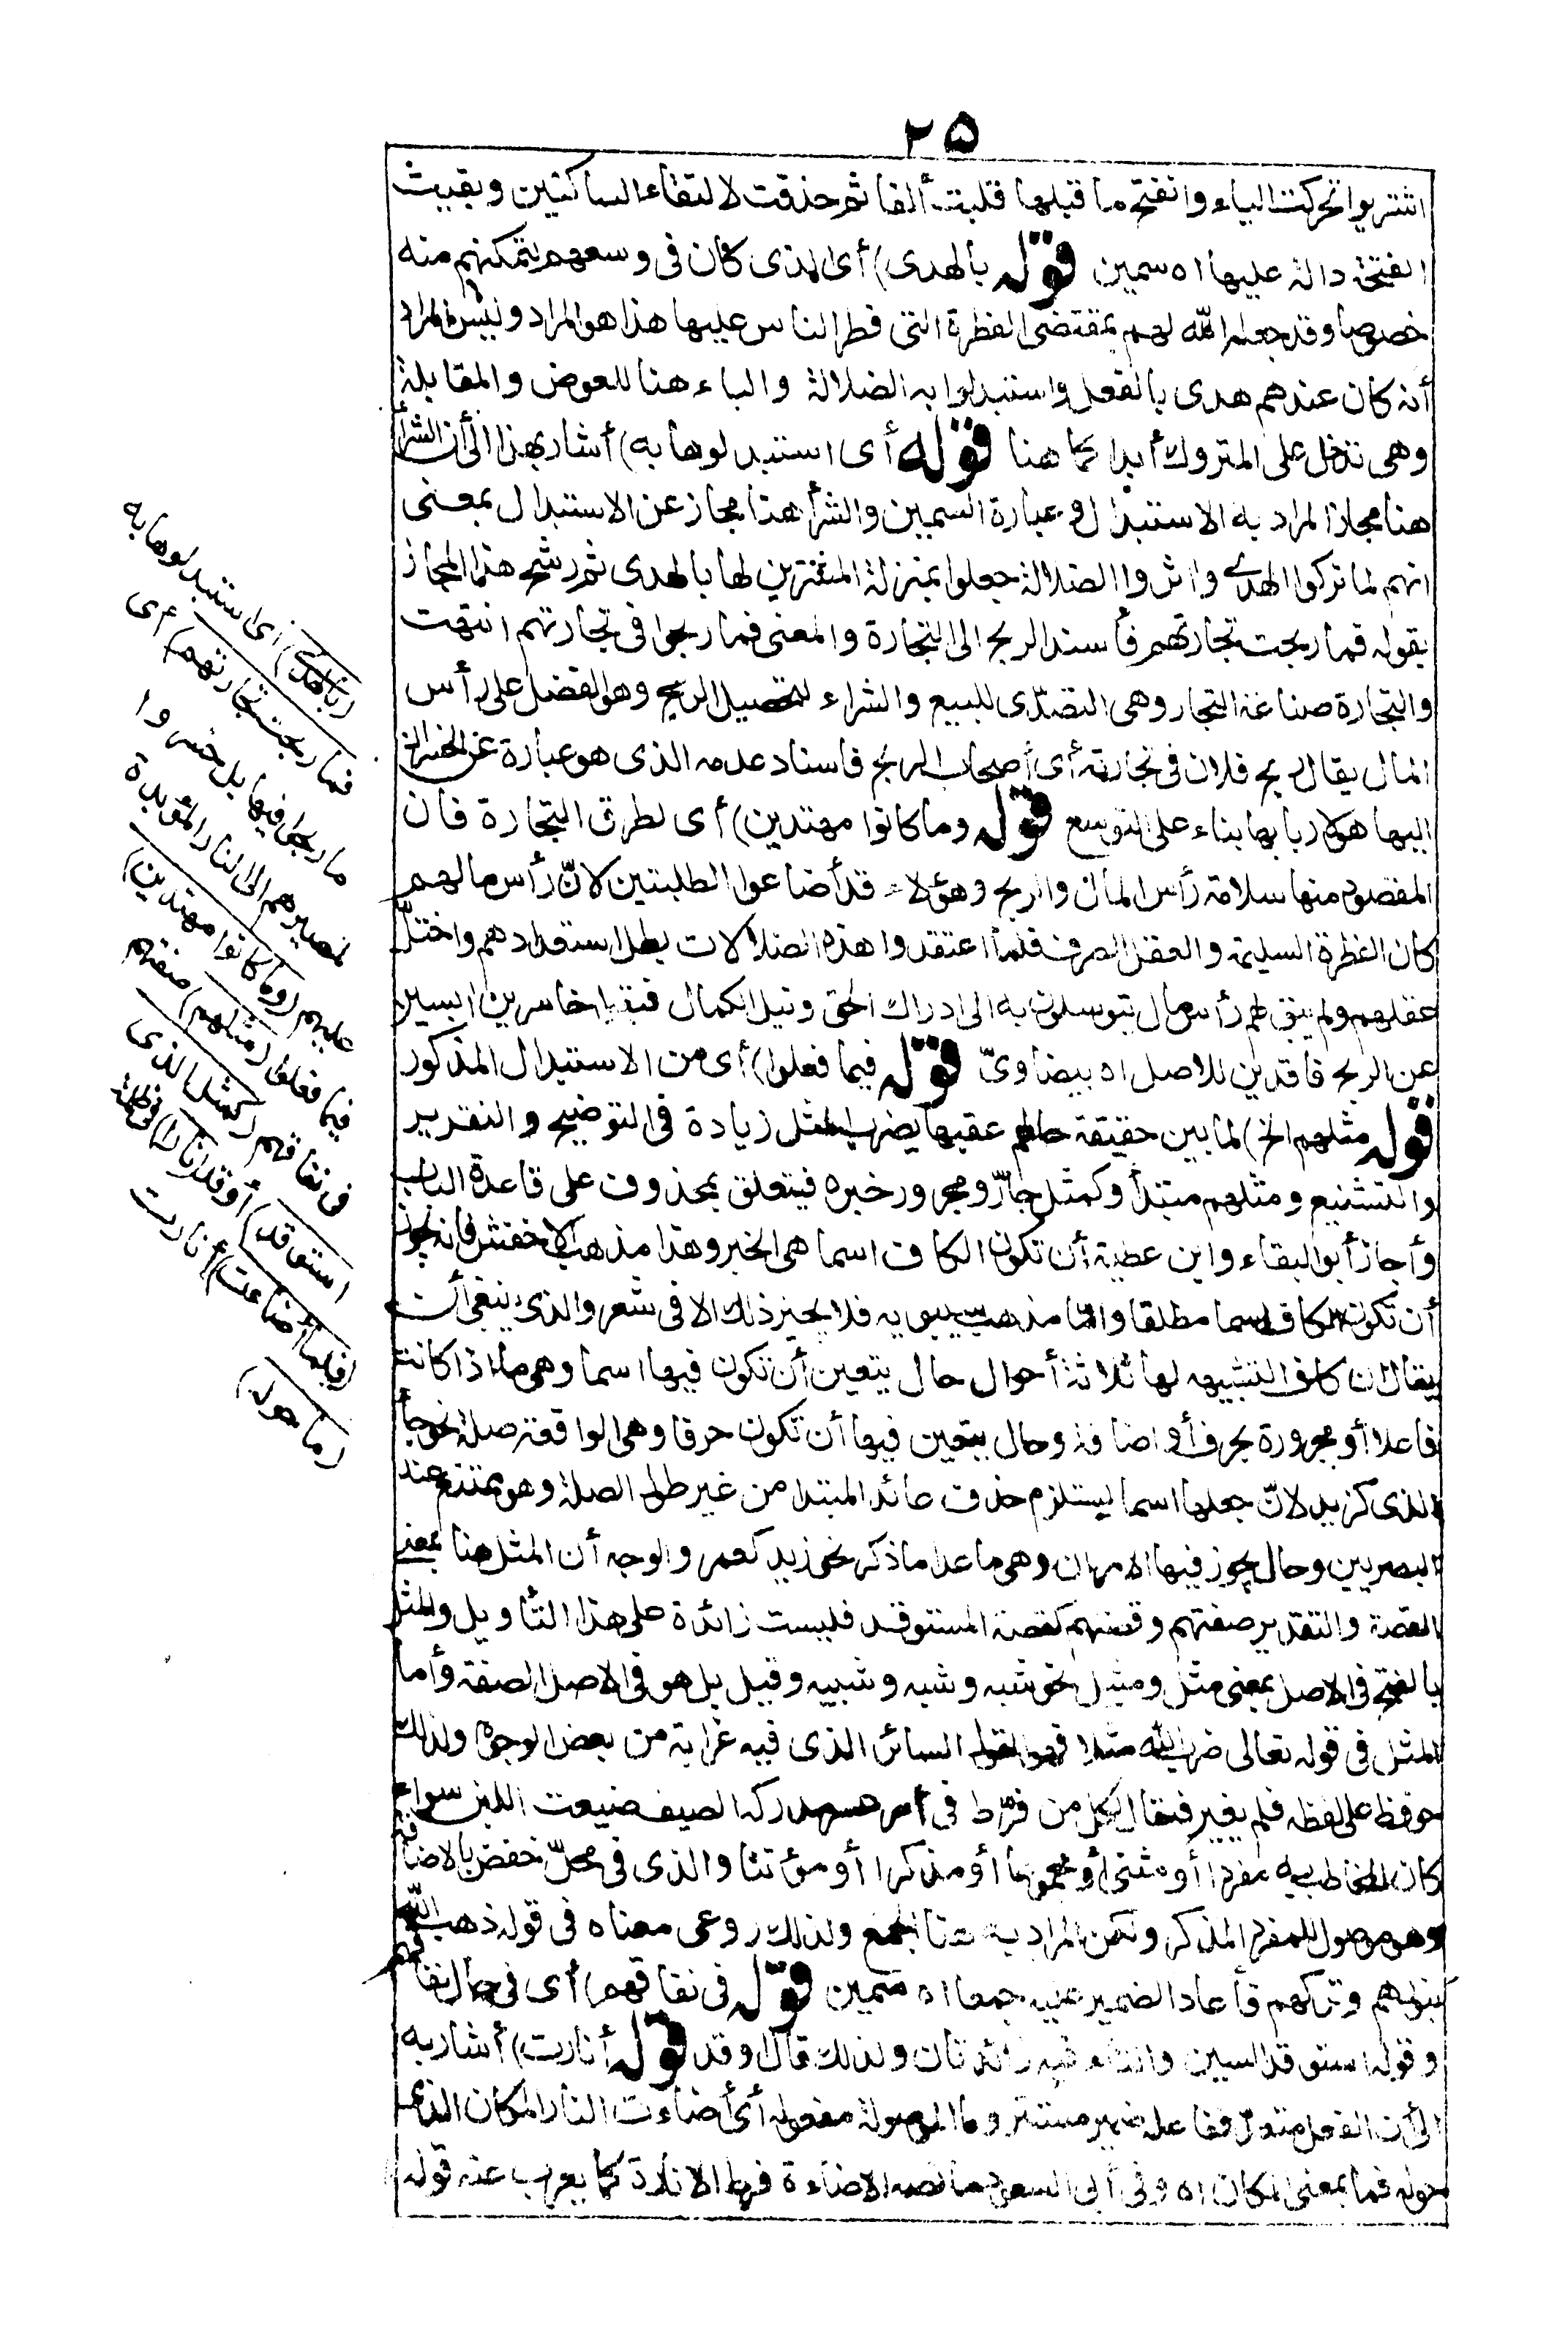 ٢٥
اشتريوا تحركت الياء وانفتح ما قبلها قلبت ألفا ثم حذفت لالتقاء الساكنين وبقيت
الفتحة دالة عليها اه سمين قوله بالهدى) أى الذى كان فى وسعهم بتمكنهم منه
خصوصا وقد جعله الله لهم بمقتضى الفطرة التى فطر الناس عليها هذا هو المراد وليس المراد
أنه كان عندهم هدى بالفعل واستبدلوا به الضلالة والباء هنا للعوض والمقابلة
وهى تدخل على المتروك أبدا كما هنا قوله أى استبدلوها به) أشار بهذا الى أن الشرأ
هنا مجاز المراد به الاستبدال وعبارة السمين والشرأ هنا مجاز عن الاستبدال بمعنى
انهم لما تركوا الهدى واثروا الضلالة جعلوا بمنزلة المشترين لها بالهدى ثم رشح هذا المجاز
بقوله فما ربحت تجارتهم فأسند الربح الى التجارة والمعنى فما ربحوا فى تجارتهم انتهت
والتجارة صناعة التجار وهى التصدّى للبيع والشراء لتحصيل الربح وهو الفضل على رأس
المال يقال ربح فلان فى تجارته أى أصحاب الربح فاسناد عدمه الذى هو عبارة عن الخسران
اليها هو لاربابها بناء على التوسع قوله وما كانوا مهتدين) أى لطرق التجارة فان
المقصود منها سلامة رأس المال والربح وهؤلاء قد أضاعوا الطلبتين لانّ رأس مالهم
كان الفطرة السليمة والعقل الصرف فلما اعتقدوا هذه الضلالات بطل استعدادهم واختلّ
عقلهم ولم يبق لهم رأس مال يتوسلون به الى ادراك الحق ونيل الكمال فبقوا خاسرين ايسين
عن الربح فاقدين للاصل اه بيضاوىّ قوله فيما فعلوا) أى من الاستبدال المذكور
قوله مثلهم الخ) لما بين حقيقة حالهم عقبها بضرب المثل زيادة فى التوضيح والتقرير
والتشنيع ومثلهم مبتدأ وكمثل جارّ ومجرور خبره فيتعلق بمحذوف على قاعدة الباب
وأجاز أبو البقاء وابن عطية أن تكون الكاف اسما هى الخبر وهذا مذهب الاخفش فانه يجوز
أن تكون الكاف اسما مطلقا وامّا مذهب سيبويه فلا يجيز ذلك الا فى شعر والذى ينبغى أن
يقال ان كاف التشبيه لها ثلاثة أحوال حال يتعين أن تكون فيها اسما وهى ما اذا كانت
فاعلا أو مجرورة بحرف أو اضافة وحال يتعين فيها أن تكون حرفا وهى الواقعة صلة نحو جاء
الذى كزيد لانّ جعلها اسما يستلزم حذف عائد المبتدا من غير طول الصلة وهو ممتنع عند
البصريين وحال يجوز فيها الامران وهى ما عدا ما ذكر نحو زيد كعمر والوجه أن المثل هنا بمعنى
القصة والتقدير صفتهم وقصتهم كقصة المستوقد فليست زائدة على هذا التأويل والمثل
بالفتح فى الاصل بمعنى مثل ومثيل نحو شبه وشبه وشبيه وقيل بل هو فى الاصل الصفة وأما
المثل فى قوله تعالى ضرب الله مثلا فهو القول السائر الذى فيه غرابة من بعض الوجوه ولذلك
حوفظ على لفظه فلم يغير فيقال لكل من فرّط فى أمر عسر مدركه الصيف ضيعت اللبن سواء
كان المخاطب به مفردا أو مثنى أو مجموعا أو مذكرا أو مؤنثا والذى فى محلّ خفض بالاضافة
وهو موصول للمفرد المذكر ولكن المراد به هنا الجمع ولذلك روعى معناه فى قوله ذهب الله
بنورهم وتركهم فأعاد الضمير عليه جمعا اه سمين قوله فى نفاقهم) أى فى حال نفاقهم
وقوله استوقد السين والتاء فيه زائدتان ولذلك قال أوقد قوله أنارت) أشار به
الى أن الفعل متعدّ ففاعله ضمير مستتر وما الموصولة مفعوله أى أضاءت النار المكان الذى
حوله فما بمعنى المكان اه وفى أبى السعود ما نصه الاضاءة فرط الانارة كما يعرب عنه قوله
(بالهدى) اى استبدلوها به
فما ربحت تجارتهم) اى
ما ربحوا فيها بل خسروا
لمصيرهم الى النار المؤبدة
عليهم (وما كانوا مهتدين)
فيما فعلوا (مثلهم) صفتهم
فى نفاقهم (كمثل الذى
استوقد) أوقد (نارا) فى ظلمة
(فلما أضاءت) أنارت
(ما حوله)